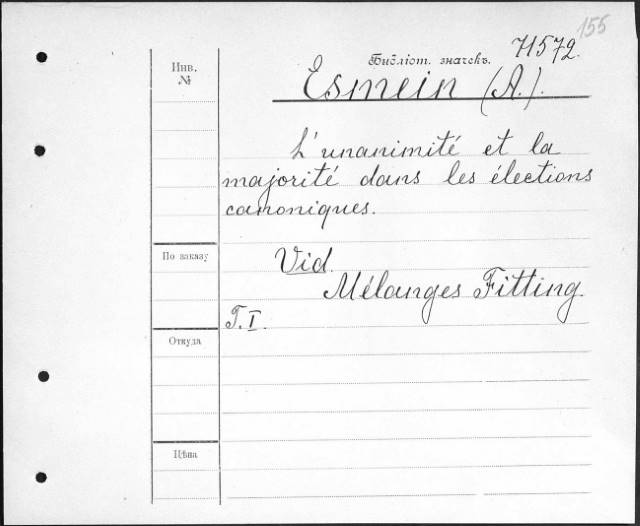 155
Библіот. значекъ. 71572.
Инв.
№
Esmein (A.).
L'unanimité et la
majorité dans les élections
canoniques.
По заказу
Vid.
Mélanges Fitting.
T. I.
Откуда
Цѣна